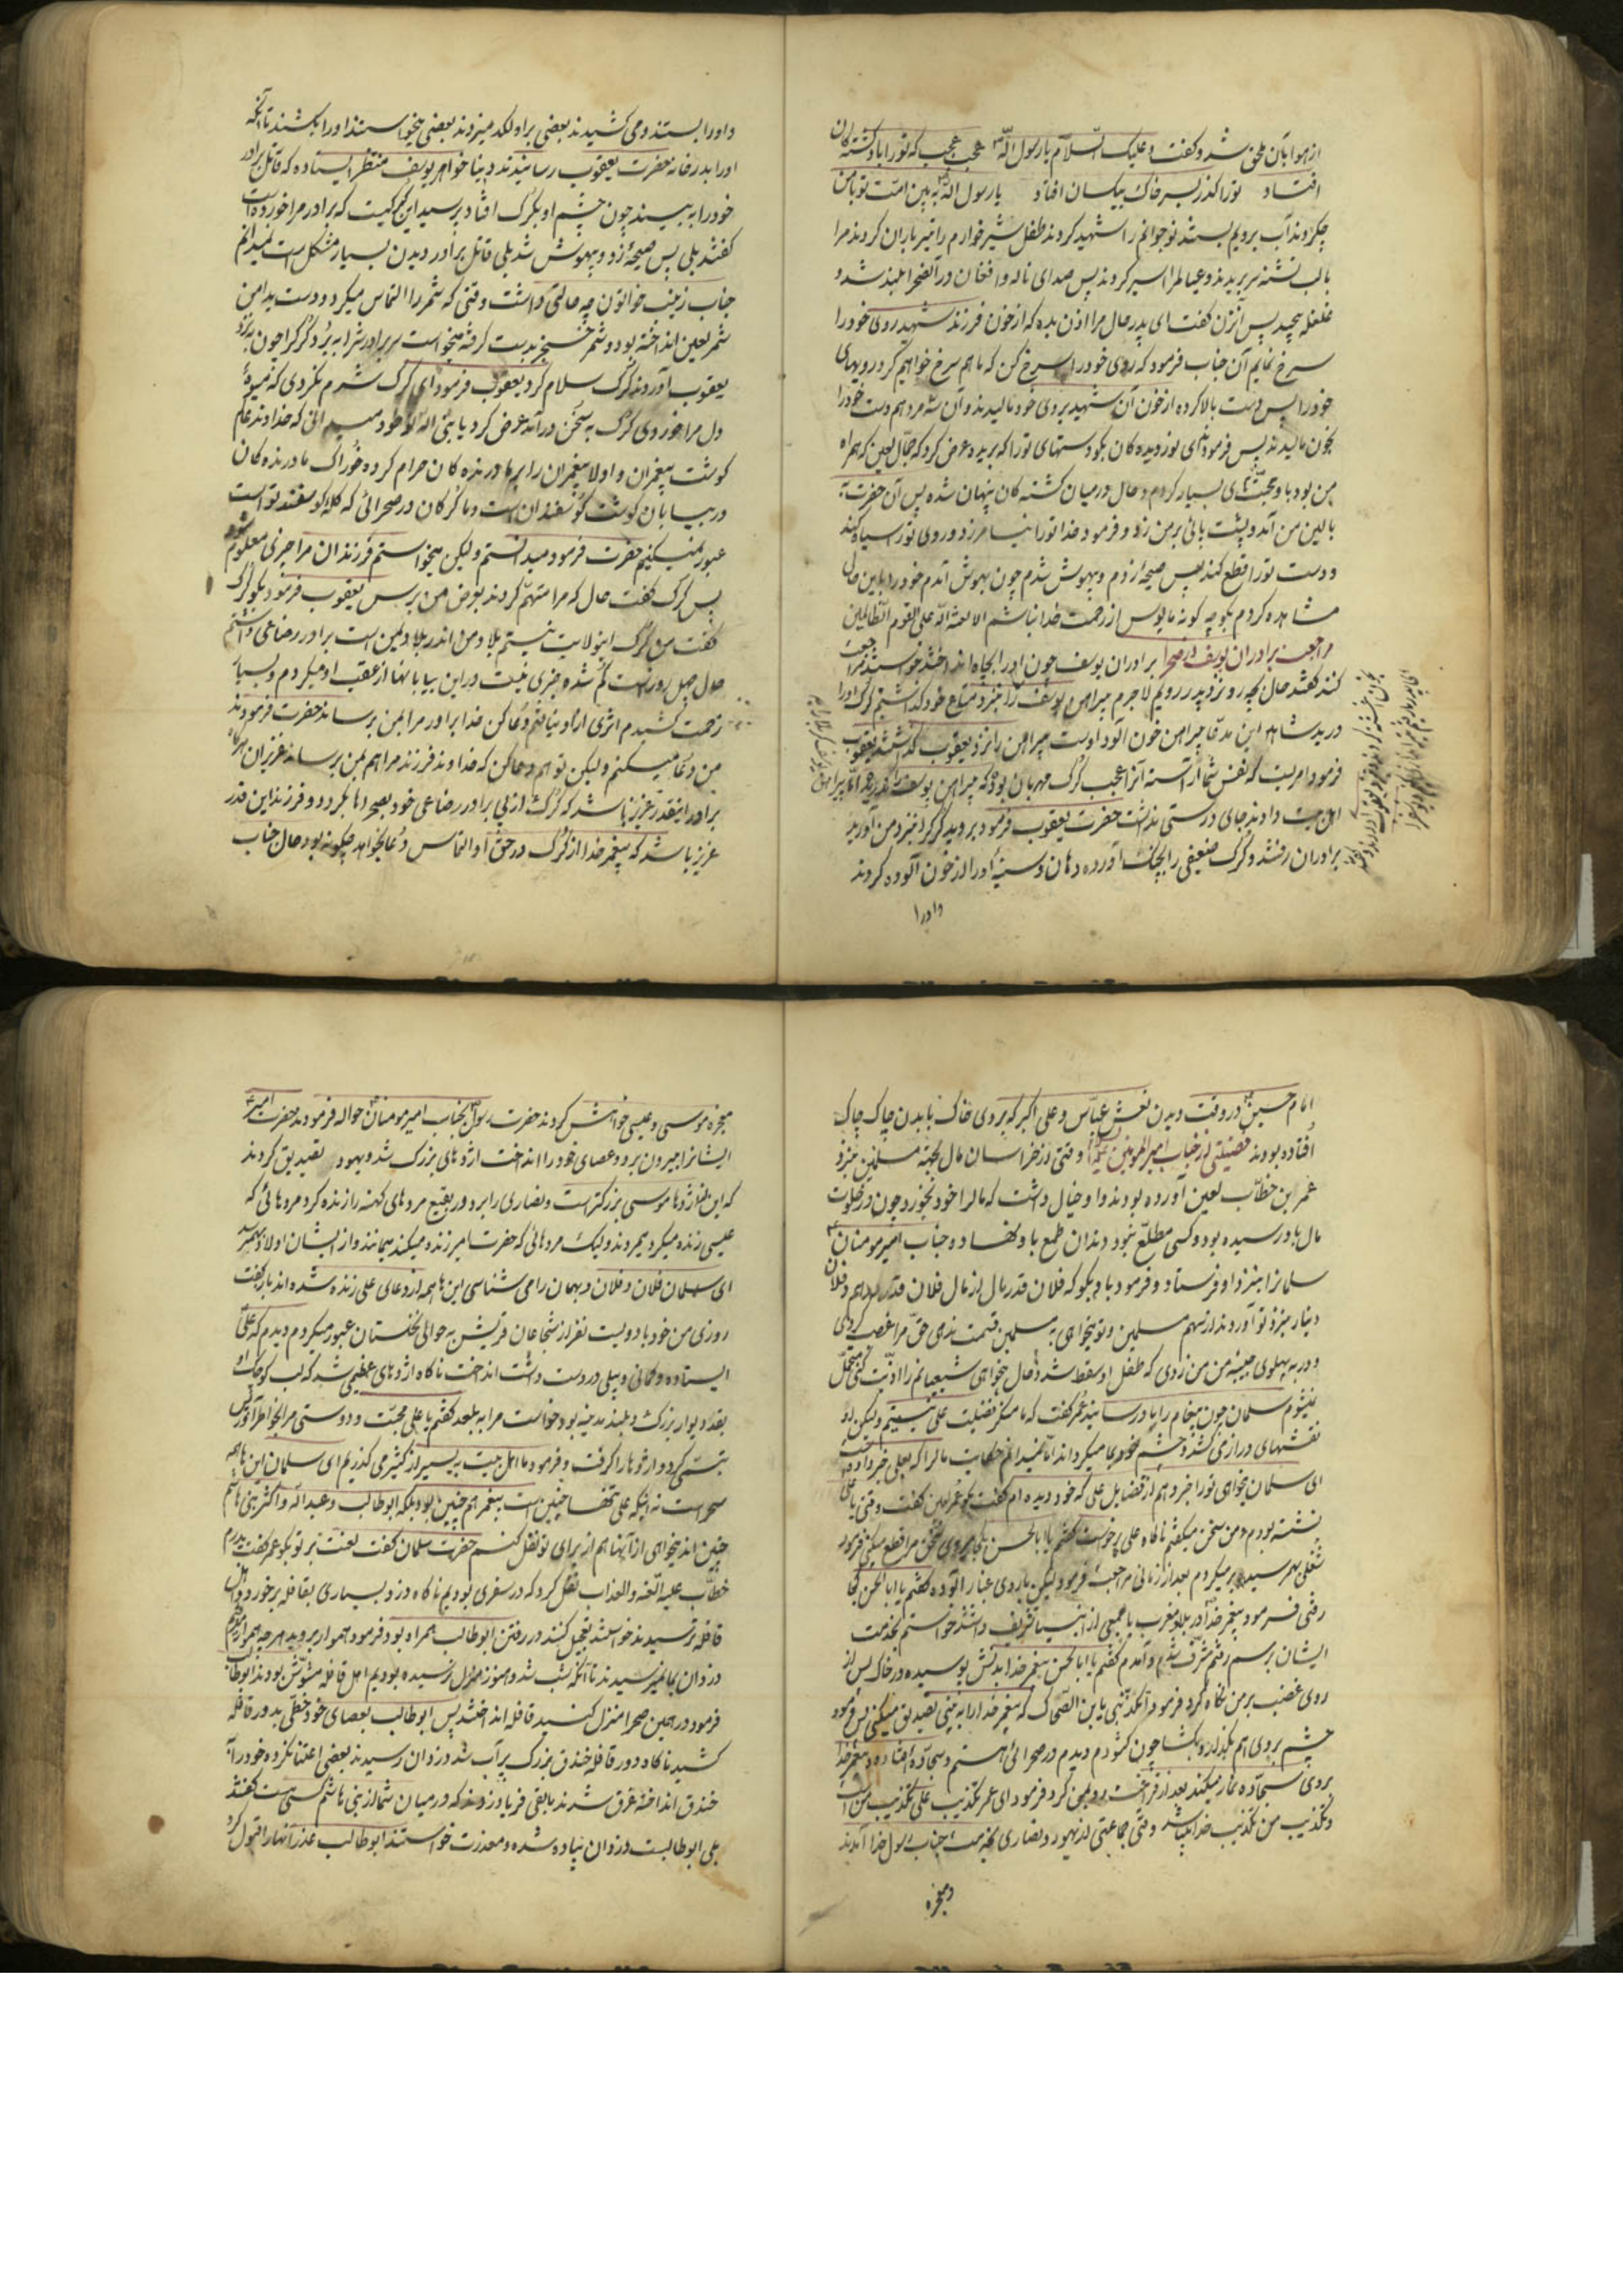 از هوا بآن ملحق شد و کفت و علیک السّلام یا رسول اللّه عجب عجب که تو را بادکشته کان
افتاد تو را کذر بسر خاک بیکسان افتاد یا رسول اللّه به بین امّت تو با من
چکردند آب برویم بستند نوجوانم را شهید کردند طفل شیرخوارم را تیر باران کردند مرا
با لب تشنه سر بریدند و عیالمرا اسیر کردند پس صدای ناله و افغان در آنصحرا بلند شد و
غلغله پیچید پس آنزن کفت ای پدر حال مرا اذن بده که از خون فرزند شهید روی خود را
سرخ نمایم آن جناب فرمود که روی خود را سرخ کن که ما هم سرخ خواهیم کرد رویهای
خود را پس دست بالا کرده از خون آن شهید بروی خود مالیدند و آن سه مرد هم دست خود را
بخون مالیدند پس فرمود ای نور دیده کان بکو دستهای تو را که بریده عرض کرد که جمّال لعین که همراه
من بود با و محبّتهای بسیار کردم و حال در میان کشته کان پنهان شده پس آن حضرت
بالین من آمد و پشت پائی بر من زد و فرمود خدا تو را نیامرزد و روی تو را سیاه کند
و دست تو را قطع کند پس صیحهٔ زدم و بیهوش شدم چون بهوش آمدم خود را باین حال
مشاهده کردم بکو چه کونه مایوس از رحمت خدا نباشم الا لعنة اللّه علی القوم الظّالمین
مراجعت برادران یوسف از صحرا برادران یوسف چون او را بچاه انداختند خواستند مراجعت
کنند کفتند حال بچه رو نزد پدر رویم لاجرم پیراهن یوسف را نزد متاع خود کذاشتیم کرک او را
درید شاهد این مدعا پیراهن خون آلود اوست پیراهن را نزد یعقوب کذاشتند یعقوب
فرمود امریست که نفس شما آراسته آنرا عجب کرک مهربان بوده که پیراهن یوسف را ندریده امّا پیراهن
اهل بیت دادند جای درستی نداشت حضرت یعقوب فرمود بروید کرک را نزد من آورید
برادران رفتند و کرک ضعیفی را بچنک آورده دهان و سینهٔ او را از خون آلوده کردند
و او را
و او را بستند و می کشیدند بعضی بر او لکد میزدند بعضی میخواستند او را بکشند تا آنکه
او را بدر خانه حضرت یعقوب رسانیدند دینا خواهر یوسف منتظر ایستاده که قاتل برادر
خود را به بیند چون چشم او بکرک افتاد پرسید این کرکیست که برادر مرا خورده است
کفتند بلی پس صیحهٔ زد و بیهوش شد بلی قاتل برادر دیدن بسیار مشکل است نمیدانم
جناب زینب خواتون چه حالتی داشت وقتی که شمر را التماس میکرد و دست بدامن
شمر لعین انداخته بود و شمر خنجر بدست کرفته میخواست سر برادرش را به برّد کرک را چون نزد
یعقوب آوردند کرک سلام کرد یعقوب فرمود ای کرک شرم نکردی که میوهٔ
دل مرا خوردی کرک به سخن در آمد عرض کرد یا نبی اللّه تو خود میدانی که خداوند عالم
کوشت پیغمران و اولاد پیغمران را بر ما درنده کان حرام کرده خوراک ما درنده کان
در بیابان کوشت کوسفندان است و ما کرکان در صحرائی که کلهٔ کوسفند تو است
عبور نمیکنیم حضرت فرمود میدانستم ولیکن میخواستم فرزندان مرا چیزی معلوم شود
پس کرک کفت حال که مرا متهم کردند بعرض من برس یعقوب فرمود بکو کرک
کفت من کرک این ولایت نیستم بلاد من اندر بلاد یمن است برادر رضاعی داشتم
حال چهل روز است کم شده خبری نیست در این بیابانها از عقب او میکردم و بسیار
زحمت کشیدم اثری از او نیافتم دعا کن خدا برادر مرا بمن برساند حضرت فرمودند
من دعا میکنم ولیکن تو هم دعا کن که خداوند فرزند مرا هم بمن برساند عزیزان هرکاه
برادر اینقدر عزیز باشد که کرک از پی برادر رضاعی خود بصحراها بکردد و فرزند این قدر
عزیز باشد که پیغمر خدا از کرک در حق او التماس دعا بخواهد چکونه بود حال جناب
امام حسین در وقت دیدن نعش عبّاس و علی اکبر که بروی خاک با بدن چاک چاک
افتاده بودند فضیلتی از جناب امیر المومنین وقتی از خراسان مال بجهة مسلمین نزد
عمر بن خطّاب لعین آورده بودند و او خیال داشت که مال را خود بخورد چون در خلوت
مال باو رسیده بود و کسی مطلع نبود دندان طمع باو نهاد و جناب امیر مومنان
سلمانرا نزد او فرستاد و فرمود باو بکو که فلان قدر مال از مال فلان قدر درهم و فلان
دینار نزد تو آوردند از سهم مسلمین و تو میخواهی به مسلمین قسمت ندهی حق مرا غصب کردی
و در به پهلوی صبیه من زدی که طفل او سقط شد و حال میخواهی شیعیانم را اذیّت کنی متحمّل
نمیشوم سلمان چون پیغام را باو رسانید عمر کفت که ما منکر فضیلت علی نیستیم ولیکن او
نقشهای درازی کشد و چشم خود بما میکرداند امّا نمیدانم حکایت مال را که بعلی خبر داده
ای سلمان بخواهی تو را خبر دهم از فضایل علی که خود دیده ام کفت بکو عمر لعین کفت وقتی با علی
نشسته بودم و من سخن میکفتم ناکاه علی برخواست کفتم یا ابا الحسن کجا میروی سخن مرا قطع میکنی فرمود
شغلی بهم رسید بر میکردم بعد از زمانی مراجعت فرمود لیکن با روی غبار آلوده کفتم یا ابا الحسن کجا
رفتی فرمود پیغمر خدا در بلاد مغرب با جمعی از انبیا تشریف داشتند خواستم بخدمت
ایشان برسم رفتم مشرّف شدم و آمدم کفتم یا ابا الحسن پیغمر خدا بدنش پوسیده در خاک پس از
روی غضب بر من نکاه کرد فرمود اتکذّبنی یا بن الضّحاک که پیغمر خدا را به بینی تصدیق میکنی پس فرمود
چشم بروی هم بکذار و بکشا چون کشودم دیدم در صحرائی هستم و سجّاده افتاده و پیغمر خدا
بروی سجّاده نماز میکند بعد از فراغت رو بمن کرد فرمود ای عمر تکذیب علی تکذیب من است
و تکذیب من تکذیب خدا میباشد وقتی جماعتی از یهود و نصاری بخدمت جناب رسول خدا آمدند
و معجزه
معجزه موسی و عیسی خواهش کردند حضرت رسول بجناب امیر مومنان حواله فرمودند حضرت امیر
ایشانرا بیرون برد و عصای خود را انداخت اژدهای بزرک شد و یهود تصدیق کردند
که این از اژدها موسی بزرکتر است و نصاری را برد در بقیع مردهای کهنه را زنده کرد مردهائی که
عیسی زنده میکرد میمردند ولیک مردهائی که حضرت امیر زنده میکند میمانند و از ایشان اولاد بهم رسد
ای سلمان فلان و فلان و بهمان را می شناسی این ها همه از دعای علی زنده شده اند باز کفت
روزی من خود با دویست نفر از شجاعان قریش به حوالی نخلستان عبور میکردم دیدم که علی
ایستاده و کمانی و بیلی در دست داشت انداخت ناکاه اژدهای عظیمی شد که لب کوچک او
بقد دیوار بزرک و بلند مدینه بود خواست مرا به بلعد کفتم یا علی محبّت و دوستی مرا بخواطر آور پس
تبسّمی کرد و اژدها را کرفت و فرمود ما اهل بیت به یسیر از کثیر می کذریم ای سلمان این ها همه
سحر است نه اینکه علی تنها چنین است پیغمر هم چنین بود بلکه ابو طالب و عبد اللّه و اکثر بنی هاشم
چنین اند میخواهی از آنها هم از برای تو نقل کنم حضرت سلمان کفت لعنت بر تو بکو عمر کفت پدرم
خطّاب علیه اللّعنه و العذاب نقل کرد که در سفری بودیم ناکاه دزد بسیاری بقافله برخورد و اهل
قافله ترسیدند خواستند تعجیل کنند در رفتن ابو طالب همراه بود فرمود هموار بروید هرچه هموار رفتیم
دزدان بما نمیرسیدند تا آنکه شب شد و هنوز منزل نرسیده بودیم اهل قافله مشوّش بودند ابو طالب
فرمود در همین صحرا منزل کنید قافله انداختند پس ابو طالب بعصای خود خطّی بدور قافله
کشید ناکاه دور قافله خندق بزرک پر آب شد و دزدان رسیدند بعضی اعتنا نکرده خود را بآن
خندق انداخته غرق شدند باقی فریاد زدند که در میان شما از بنی هاشم کسی هست کفتند
بلی ابو طالبست دزدان پیاده شده و معذرت خواستند ابو طالب عذر آنها را قبول کرد